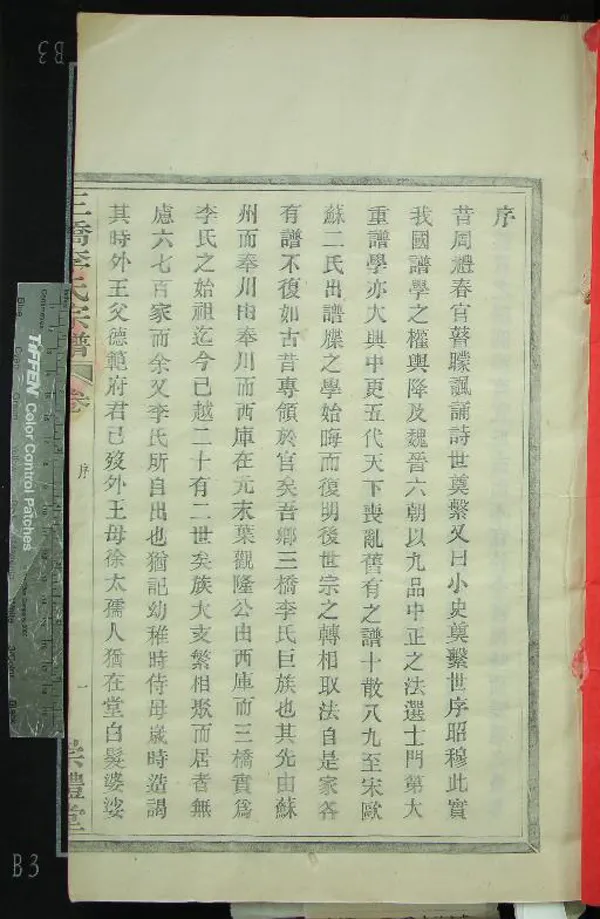 序
昔周禮春官瞽矇諷誦詩世奠繫又曰小史奠繫世序昭穆此實
我國譜學之權輿降及魏晉六朝以九品中正之法選士門第大
重譜學亦大興中更五代天下喪亂舊有之譜十散八九至宋歐
蘇二氏出譜牒之學始晦而復明後世宗之轉相取法自是家各
有譜不復如古昔專領於官矣吾鄉三橋李氏巨族也其先由蘇
州而奉川由奉川而西庫在元末葉觀隆公由西庫而三橋實為
李氏之始祖迄今已越二十有二世矣族大支繁相聚而居者無
慮六七百家而余又李氏所自出也猶記幼稚時侍母歲時造謁
其時外王父德範府君已歿外王母徐太孺人猶在堂白髮婆娑
三橋李氏宗譜
卷
序
一
崇禮堂
B3
B3
TIFFEN Color Control Patches
Blue